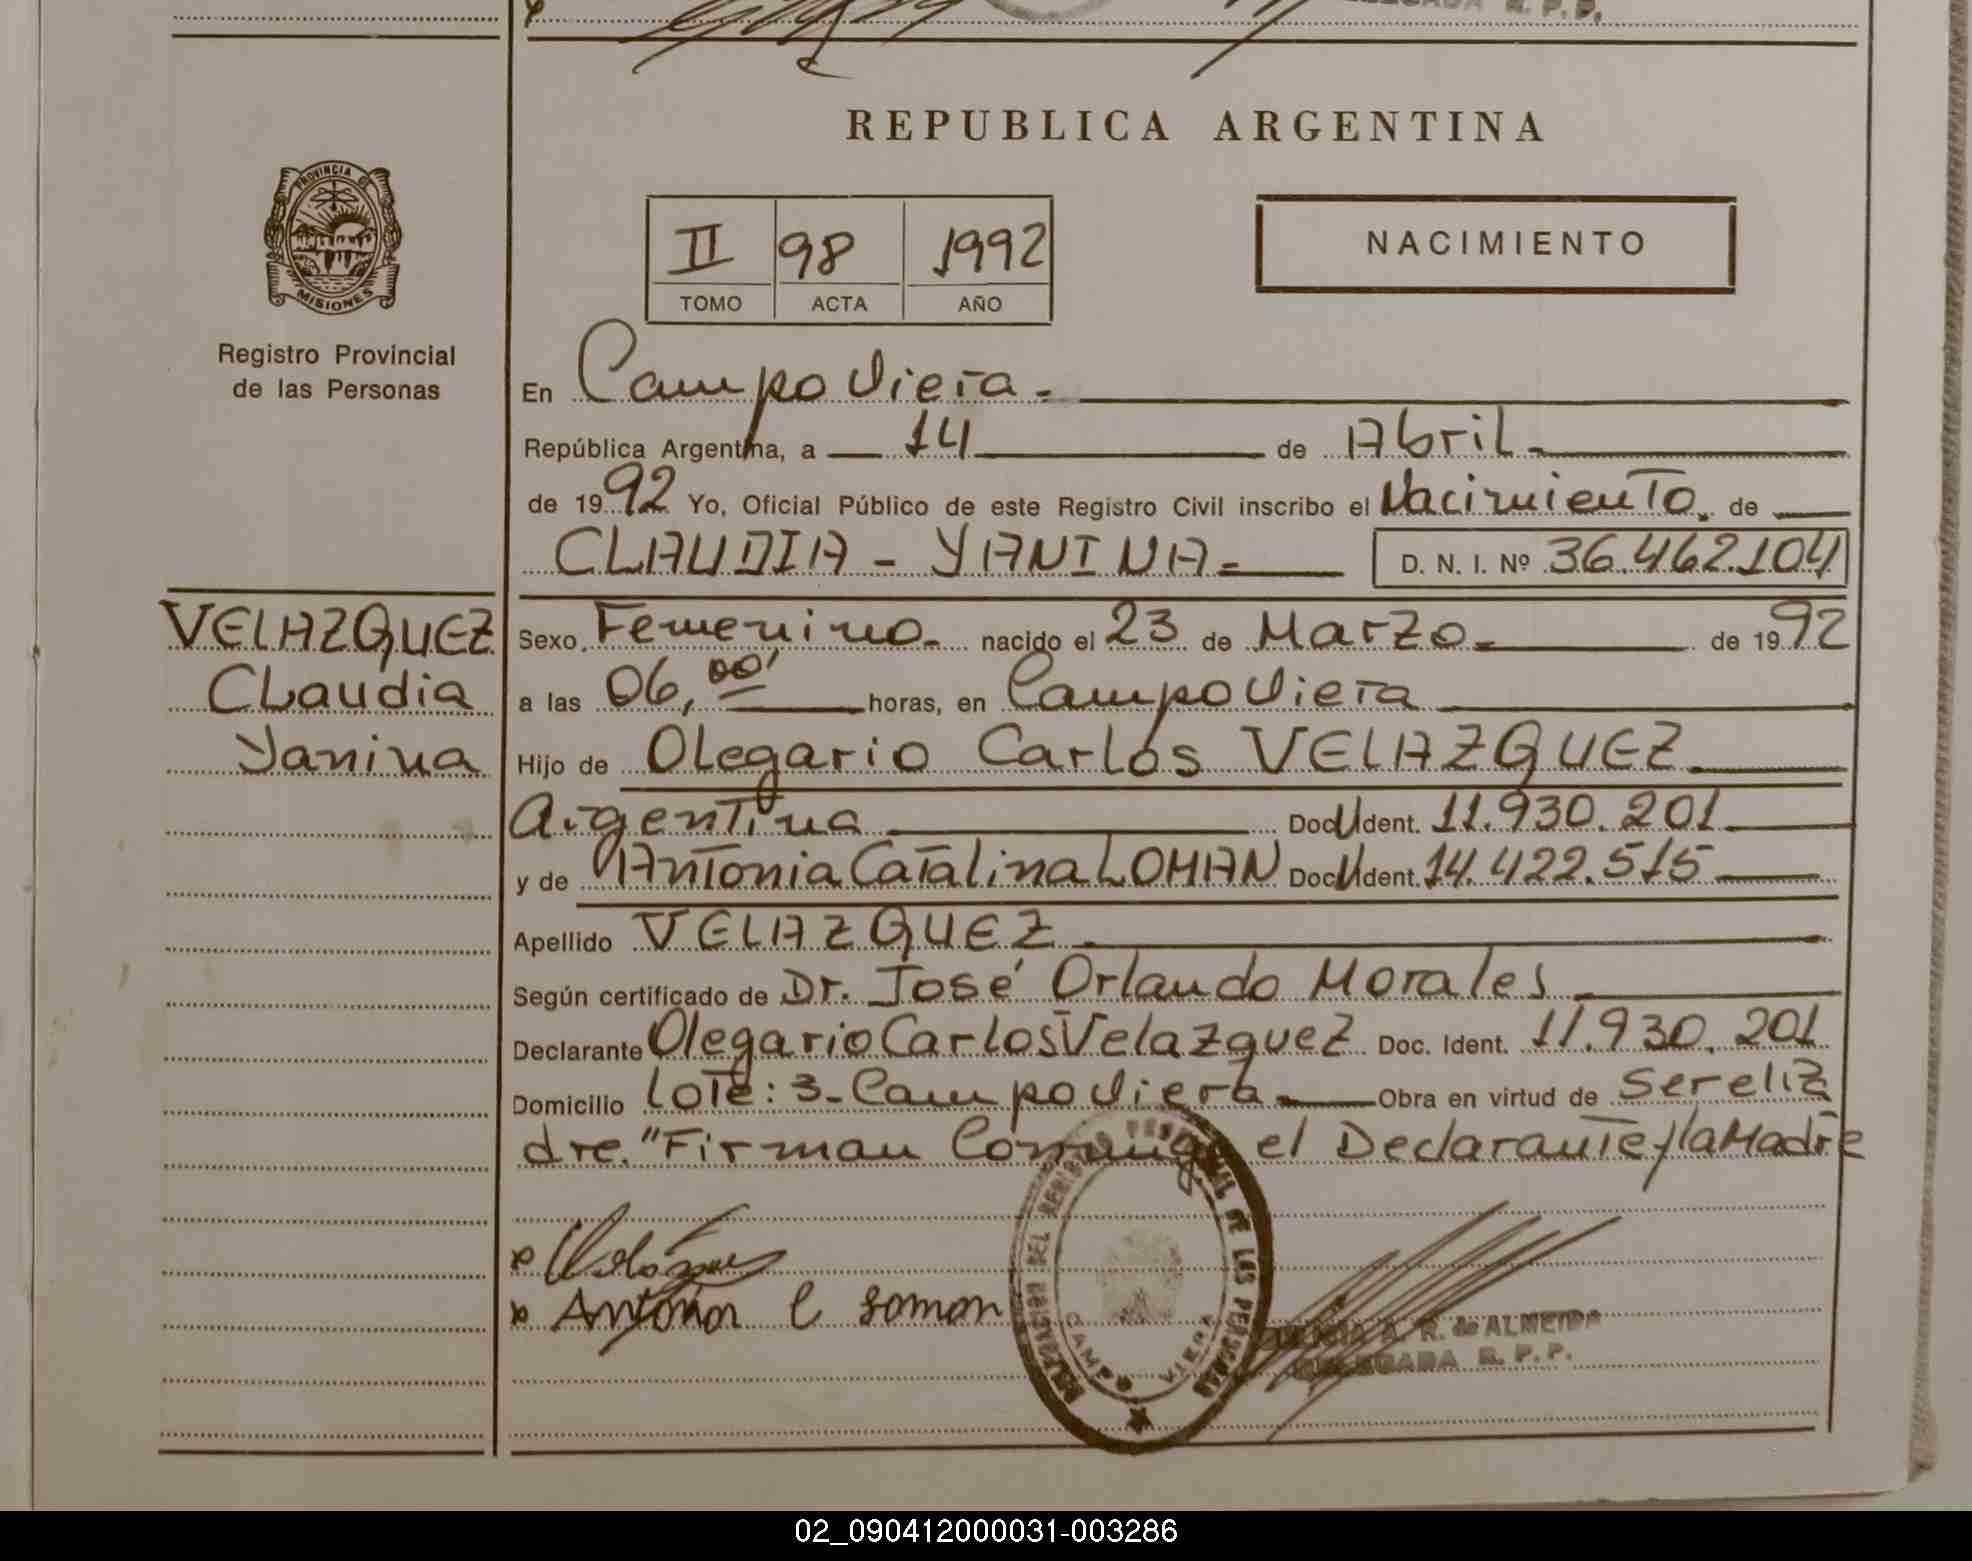 REPUBLICA ARGENTINA
PROVINCIA DE
MISIONES
Registro Provincial
de las Personas
II 98 1992
TOMO ACTA AÑO
NACIMIENTO
En Campo Viera.-
República Argentina, a 14 de Abril.-
de 1992 Yo, Oficial Público de este Registro Civil inscribo el Nacimiento. de
CLAUDIA - YANINA.- D. N. I. Nº 36.462.104
VELAZQUEZ
Claudia
Yanina
Sexo Femenino.- nacido el 23 de Marzo.- de 1992
a las 06,00' horas, en Campo Viera
Hijo de Olegario Carlos VELAZQUEZ.
Argentina Doc. Ident. 11.930.201
y de Antonia Catalina LOMAN Doc. Ident. 14.422.515
Apellido VELAZQUEZ.
Según certificado de Dr. José Orlando Morales
Declarante Olegario Carlos Velazquez Doc. Ident. 11.930.201
Domicilio Lote: 3- Campo Viera. Obra en virtud de ser el Pa
dre. "Firman Conmigo el Declarante y la Madre
Antonia C Loman
DE LAS PERSONAS
CAMPO VIERA
A. R. de ALMEIDA
DELEGADA R. P. P.
02_090412000031-003286